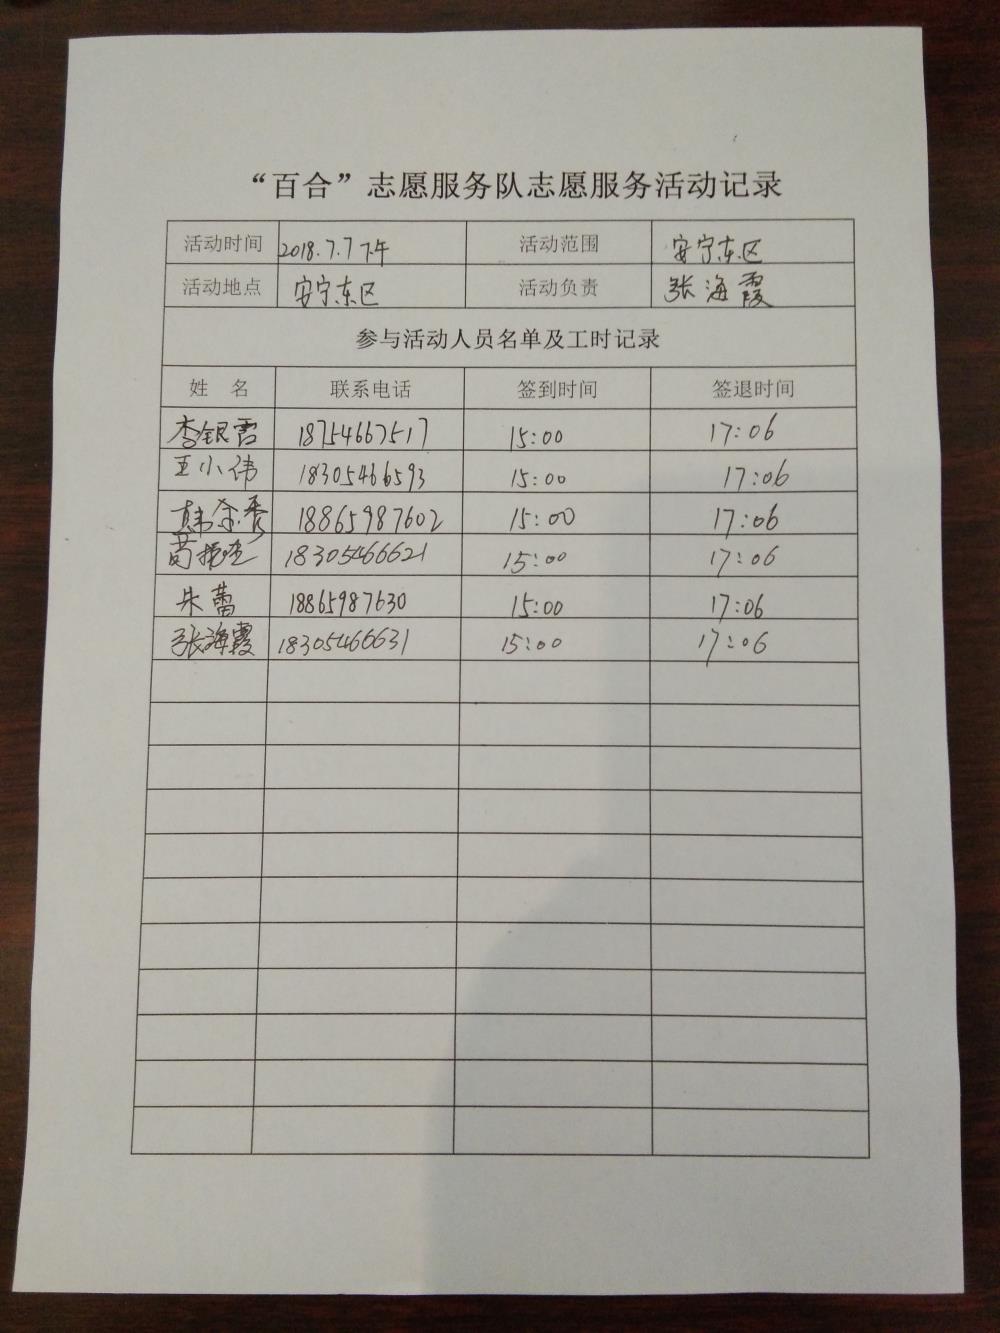 “百合”志愿服务队志愿服务活动记录
活动时间 2018.7.7 下午 活动范围 安宁东区
活动地点 安宁东区 活动负责 张海霞
参与活动人员名单及工时记录
姓 名 联系电话 签到时间 签退时间
李银霞 18754667517 15:00 17:06
王小伟 18305466593 15:00 17:06
韩 秀 18865987602 15:00 17:06
18305466621 15:00 17:06
朱蕾 18865987630 15:00 17:06
张海霞 18305466631 15:00 17:06